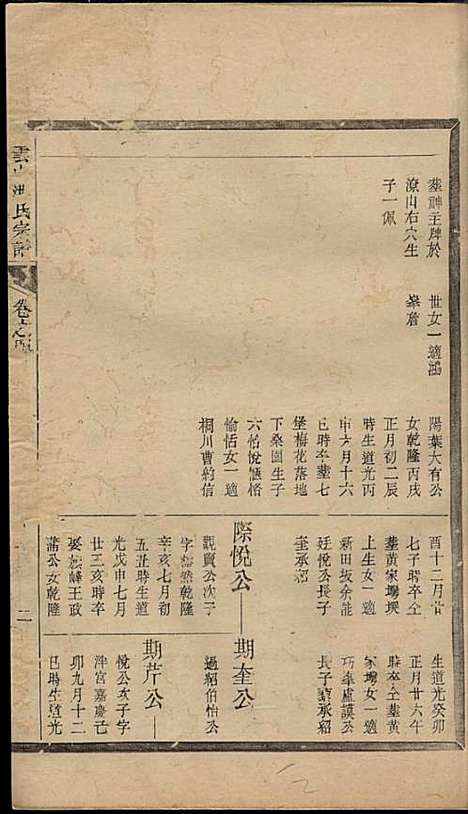 塟神主牌於
潦山右穴生
子一佩
世女一適馮
峯詹
陽葉大有公
女乾隆丙戌
正月初二辰
時生道光丙
申六月十六
巳時卒塟七
堡梅花落地
下桑園生子
六恰悅愜恪
愉恬女一適
桐川曹約信
酉十二月廿
七子時卒仝
塟黃家塲墺
上生女一適
新田坂余能
廷悅公長子
奎承紹
際悅公
觀賢公次子
字 然乾隆
辛亥七月初
五丑時生道
光戊申七月
廿三亥時卒
娶 峰王政
蒲公女乾隆
生道光癸卯
年月廿六午
時卒仝塟黃
家塲女一適
巧 盧謨公
長子 承紹
期奎公
過紹伯怡公
期芹公
悅公次子字
泮宮嘉慶己
卯九月十二
巳時生道光
氏宗譜
二